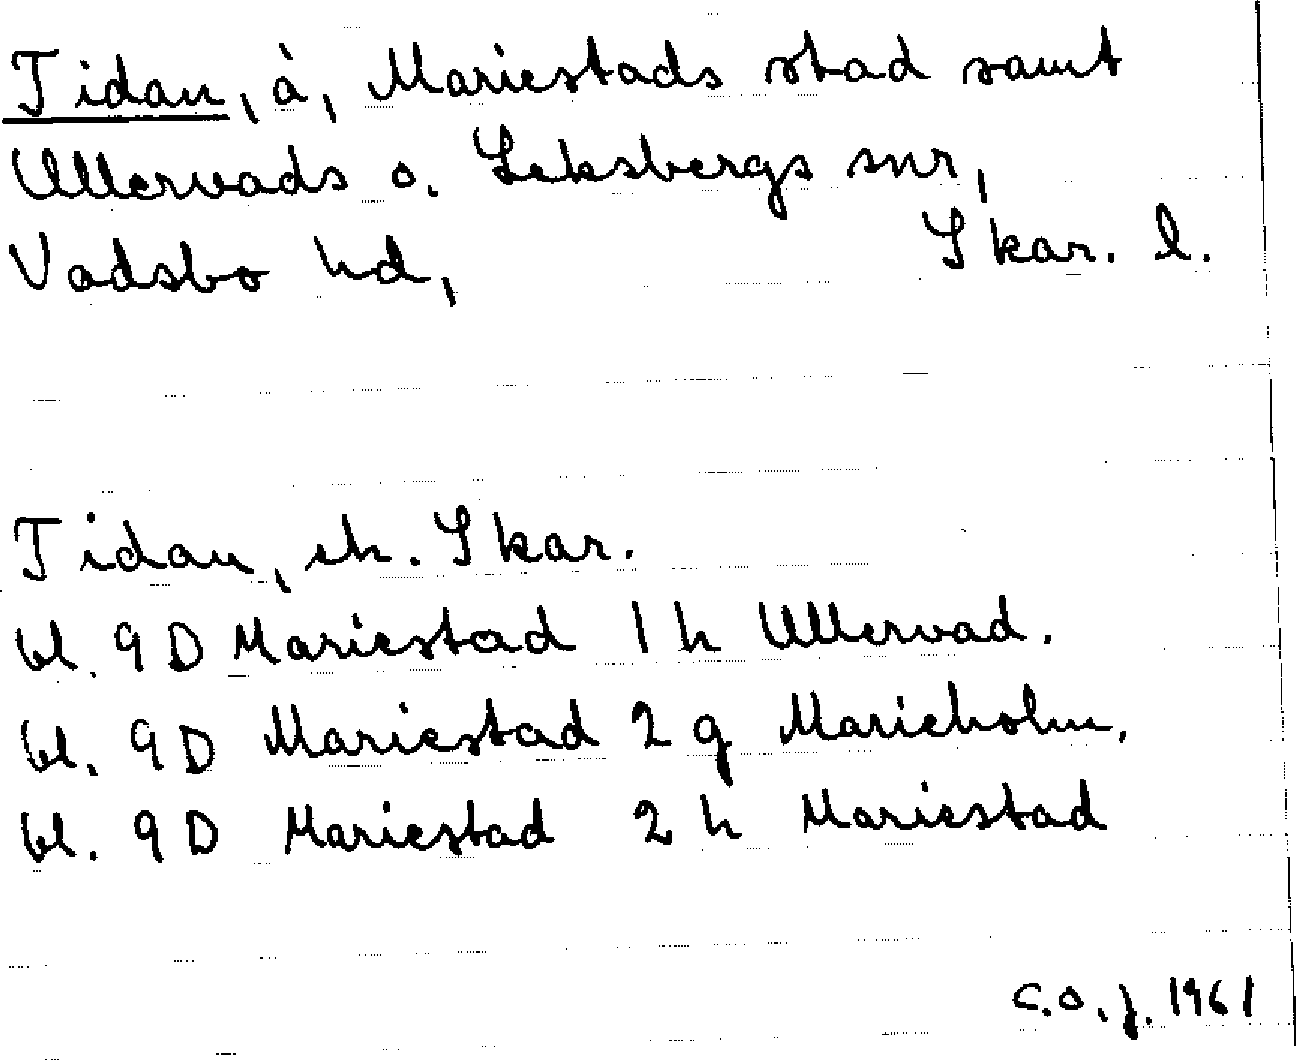 Tidan, å, Mariestads stad samt
Ullervads o. Leksbergs snr,
Vadsbo hd, Skar. l.
Tidan, ek. Skar.
bl. 9D Mariestad 1h Ullervad.
bl. 9D Mariestad 2g Marieholm.
bl. 9D Mariestad 2h Mariestad
C.O.J. 1961